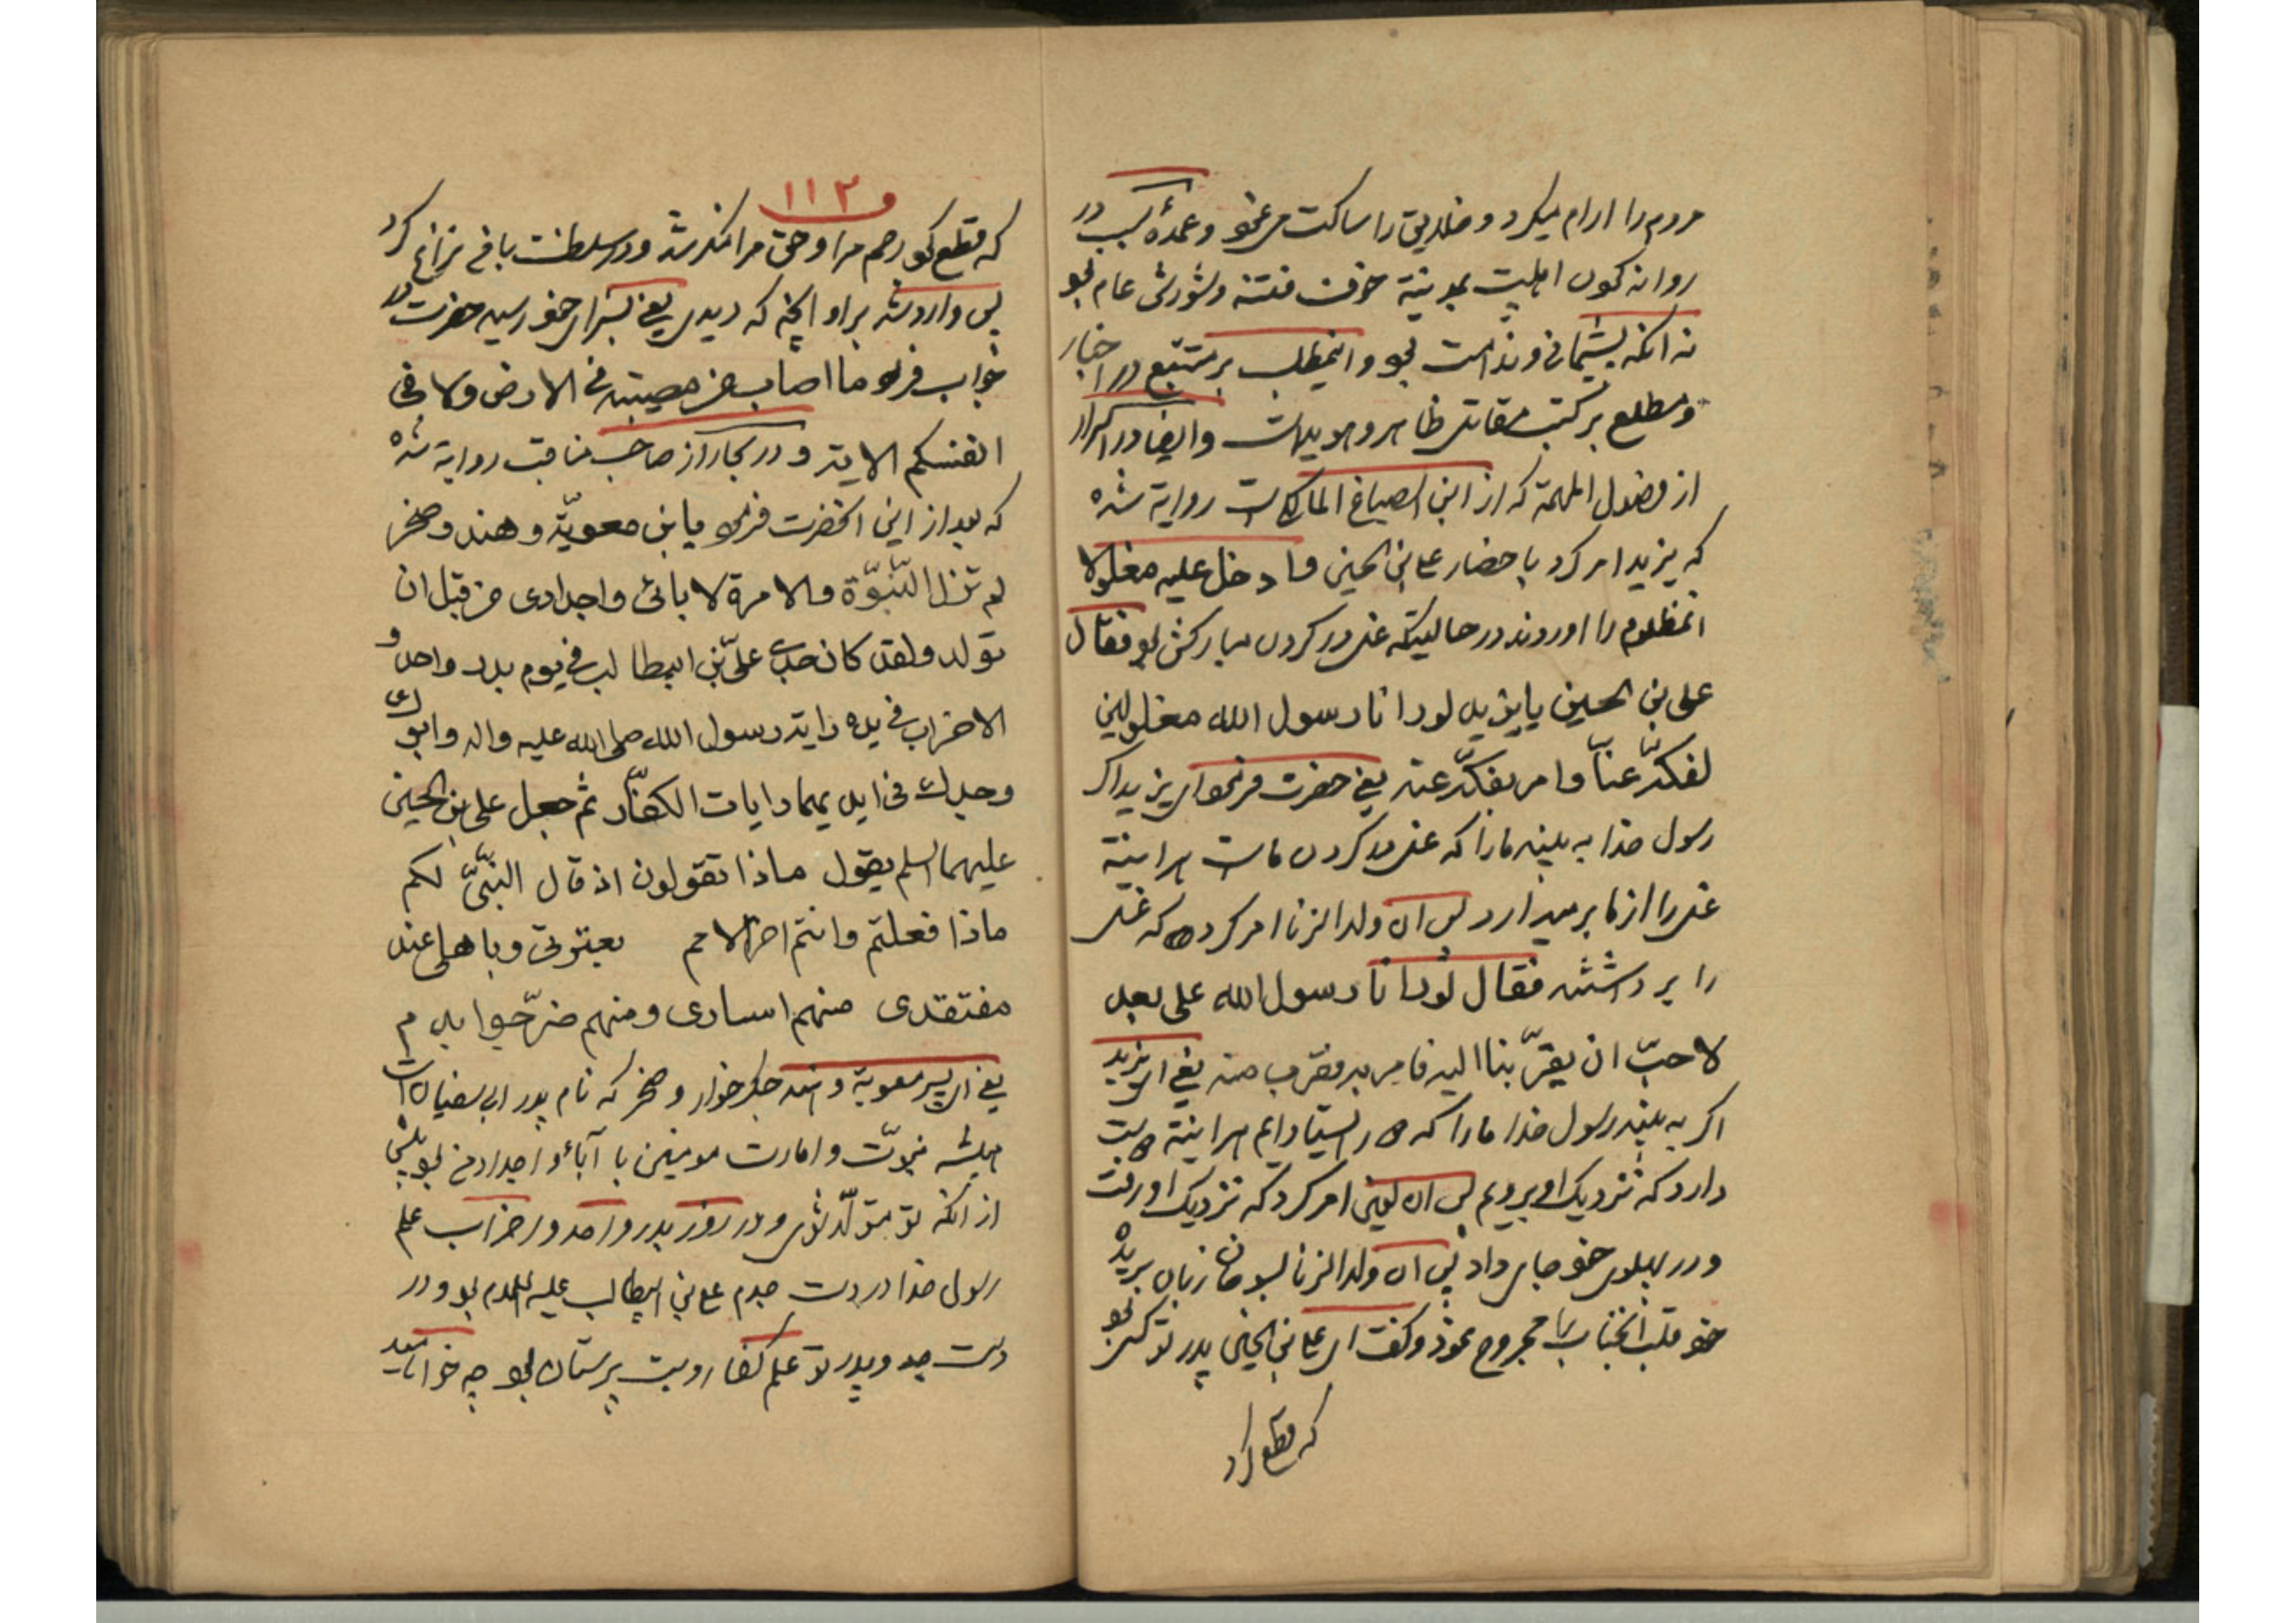 مردم را ارام میکرد و خلایق را ساکت می نمو و عمدهٔ سبب در
روانه کردن اهلبیت بمدینة خوف فتنه و شورش عام بو
نه انکه پشیمانی و ندامت بو و اینمطلب بر متتبع در اخبار
و مطلع بر کتب مقاتل ظاهر و هویداست وایضا در اسرار
از فضول المهمة که از ابن الصباغ المالکی است روایة شده
که یزید امر کرد باحضار علی بن الحسین فادخل علیه مغلولا
انمظلوم را اوردند در حالیتکه غل در کردن مبارکش بو فقال
علی بن الحسین یا یزید لو رانا رسول الله مغلولین
لفکّه عنّا فامر بفکّه عنه یعنی حضرت فرمو ای یزید اکر
رسول خدا به بیند مارا که غل در کردن ماست هراینة
غل را از ما بر میدارد پس ان ولد الزنا امر کرد که غل
را برداشتند فقال لو رانا رسول الله علی بعد
لاحبّ ان یقرّبنا الیه فامر به فقرب منه یعنی ای یزید
اکر به بیند رسول خدا مارا که دور ایستاده ایم هراینة دوست
دارد که نزدیک او برویم پس ان لعین امر کرد که نزدیک او رفت
و در پهلوی خو جای داد پس ان ولد الزنا بسوهان زبان بریدهٔ
خو قلب انجناب را مجروح نمود و کفت ای علی بن الحسین پدر تو کسی بو
که قطع کرد
۱۱۳
که قطع کو رحم مرا و حق مرا منکر شد و در سلطنت با من نزاع کرد
پس وارد شد بر او انچه که دیدی یعنی بسزای خو رسید حضرت در
جواب فرمو ما اصاب من مصیبة فی الارض ولا فی
انفسکم الایة و در بحار از صاحب مناقب روایة شده
که بعد از این انحضرت فرمو یا بن معویّة و هند و صخر
لم تزل النّبوّة والامرة لابائی واجدادی من قبل ان
تولد ولقد کان جدی علیّ بن ابیطالب فی یوم بدر واحد و
الاحزاب فی یده رایة رسول الله صلی الله علیه واله وابوک
وجدک فی ایدیهما رایات الکفّار ثم جعل علی بن الحسین
علیهما السلم یقول ماذا تقولون اذ قال النّبیّ لکم
ماذا فعلتم وانتم اخر الامم بعترتی وباهلی عند
مفتقدی منهم اساری ومنهم ضرّجوا بدم
یعنی ای پسر معویة و هند جکر خوار و صخر که نام پدر ابی سفیان است
همیشه نبوّت و امارت مومنین با آباء و اجداد من بو پیش
از انکه تو متولّد شوی و در روز بدر و احد و احزاب علم
رسول خدا در دست جدم علی بن ابیطالب علیه السلام بو و در
دست جد و پدر تو علم کفار و بت پرستان بو چه خواهید